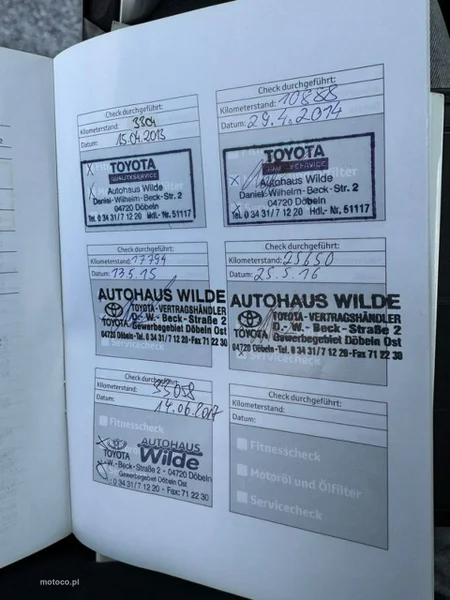 Check durchgeführt:
Kilometerstand: 3304
Datum: 15.04.2013
TOYOTA
Autohaus Wilde
Daniel-Wilhelm-Beck-Str. 2
04720 Döbeln
Tel. 0 34 31/7 12 20 Hdl.-Nr. 51117
Check durchgeführt:
Kilometerstand: 10888
Datum: 29.4.2014
TOYOTA
Autohaus Wilde
Daniel-Wilhelm-Beck-Str. 2
04720 Döbeln
Tel. 0 34 31/7 12 20 Hdl.-Nr. 51117
Check durchgeführt:
Kilometerstand: 17794
Datum: 13.5.15
AUTOHAUS WILDE
TOYOTA-VERTRAGSHÄNDLER
D.-W.-Beck-Straße 2
TOYOTA Gewerbegebiet Döbeln Ost
04720 Döbeln-Tel. 0 34 31/7 12 20-Fax 71 22 30
Servicecheck
Check durchgeführt:
Kilometerstand: 25650
Datum: 25.5.16
AUTOHAUS WILDE
TOYOTA-VERTRAGSHÄNDLER
D.-W.-Beck-Straße 2
TOYOTA Gewerbegebiet Döbeln Ost
04720 Döbeln-Tel. 0 34 31/7 12 20-Fax 71 22 30
Servicecheck
Check durchgeführt:
Kilometerstand: 35058
Datum: 14.06.2017
Fitnesscheck
AUTOHAUS
TOYOTA Wilde
W.-Beck-Straße 2 - 04720 Döbeln
Gewerbegebiet Döbeln Ost
0 34 31/7 12 20 - Fax: 71 22 30
Check durchgeführt:
Kilometerstand:
Datum:
Fitnesscheck
Motoröl und Ölfilter
Servicecheck
motoco.pl